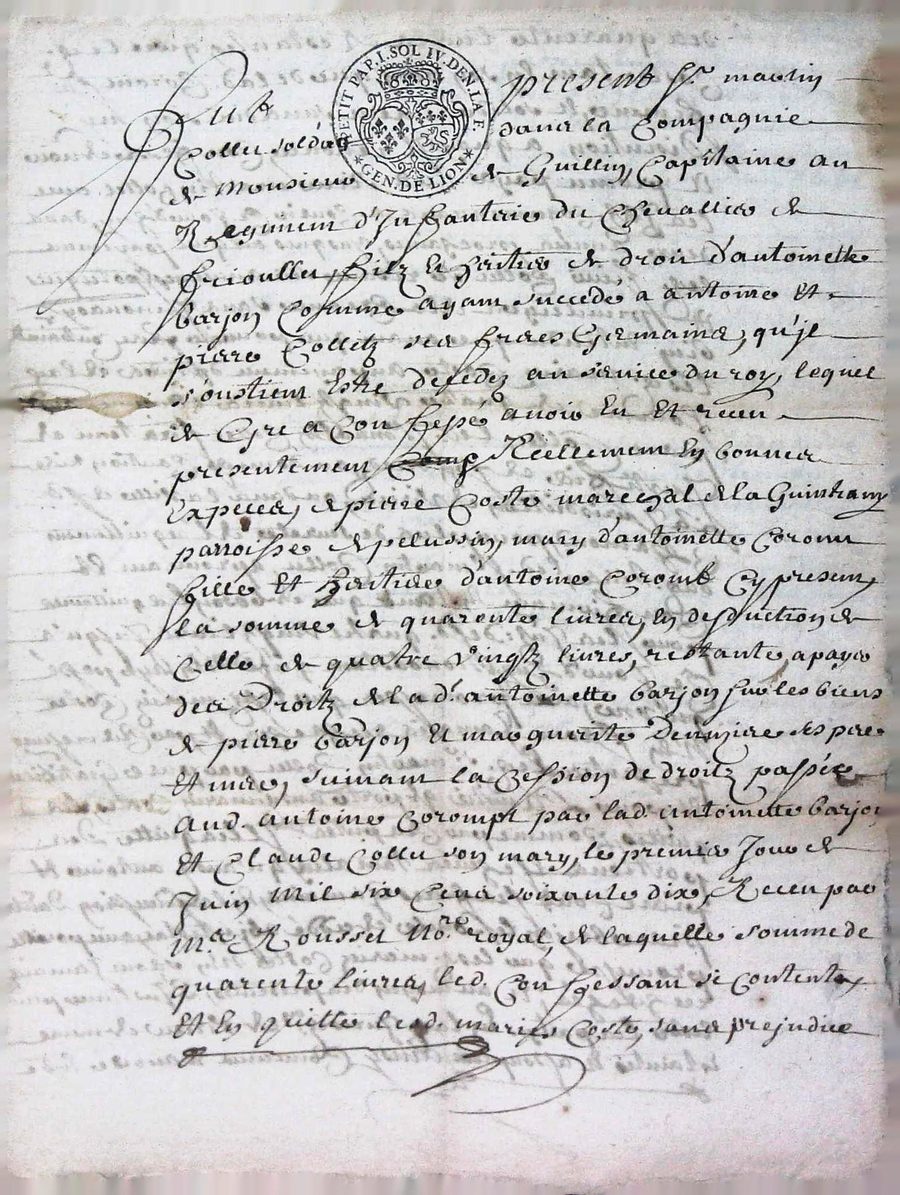 PETIT PAP. I. SOL IV. DEN. LA F.
GEN. DE LION
Fut present Sr. martin
Collu soldag dans la Compagnie
de Monsieur de Guillin, Capitaine au
Regiment d'Inffanterie du Chevallier de
frioulle, filz et heritier de droit d'antoinette
barjon Comme ayant succedé a antoine et
pierre Colletz ses freres Germains, qu'il
soustient Estre decedez au service du roy, lequel
de Gre a Confessé avoir Eu Et receu
presentement Comp Réellement En bonnes
Especes, de pierre Coste marechal de la Guintrany
parroisse de pelussin, mary d'antoinette Coromt
fille Et heritiere d'antoine Corombt Cy present,
la somme de quarente livres, en desduction de
Celle de quatre vingtz livres, restante a payer
des Droitz de lad. antoinette barjon sur les biens
de pierre barjon Et marguerite Dervizie ses pere
Et mere, suivant la Cession de droitz passée
aud. antoine Corompt par lad. antoinette barjon
Et Claude Collu son mary, le premier Jour de
Juin Mil six Cens soixante dix, Receu par
Me. Rousset Nore. royal, de laquelle somme de
quarente livres, led. Confessant se contente,
Et En quitte lesd. mariés Coste, sans prejudice